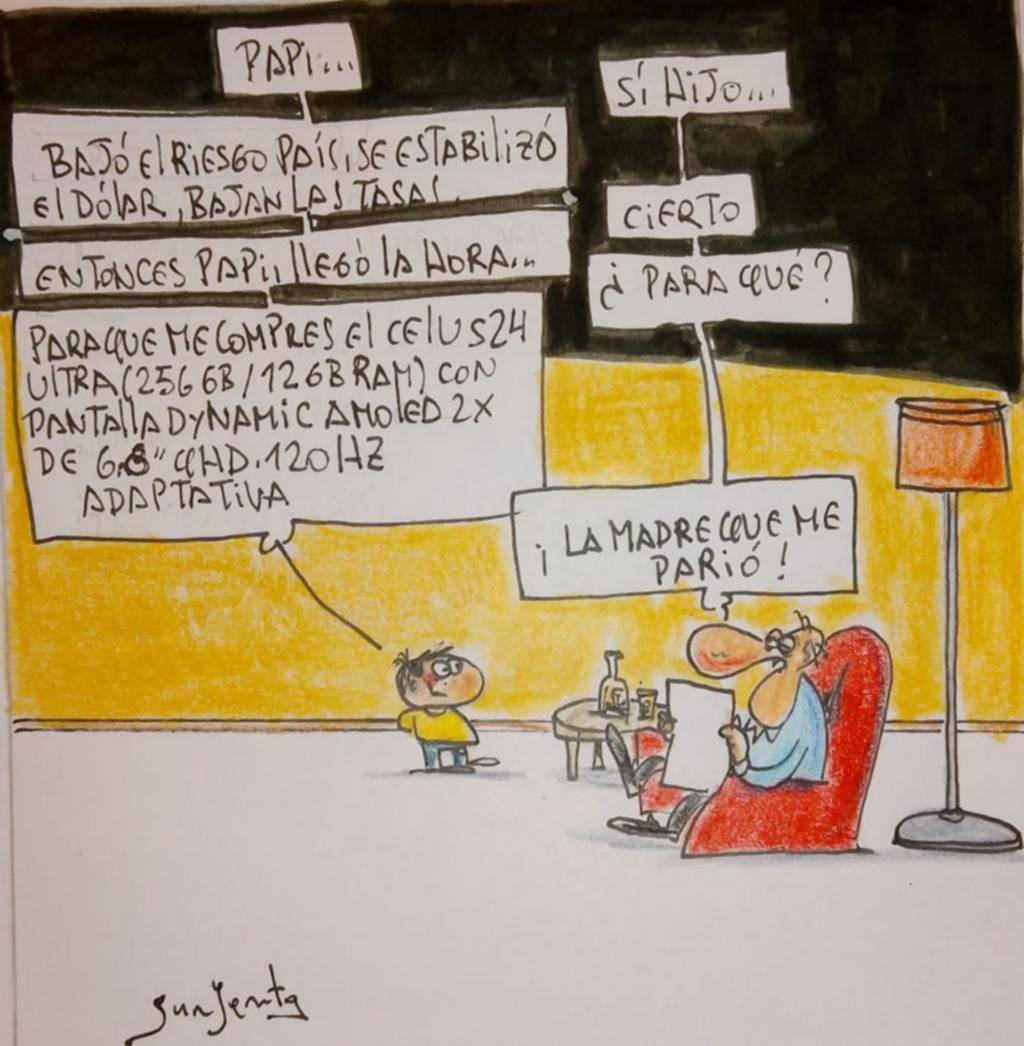 PAPI...
SÍ HIJO...
BAJÓ El RIESGO PAÍS, SE ESTABIlIZÓ
El DÓlAR, BAJAN LAS TASAS...
CIERTO
ENTONCES PAPI, llEGÓ lA HORA...
¿ PARA QUÉ ?
PARA QUE ME COMPRES El CElU S24
UlTRA (256 GB / 12 GB RAM) CON
PANTAllA DYNAMIC AMOlED 2X
DE 6.8" QHD. 120 HZ
ADAPTATIVA
¡ LA MADRE QUE ME
PARIÓ !